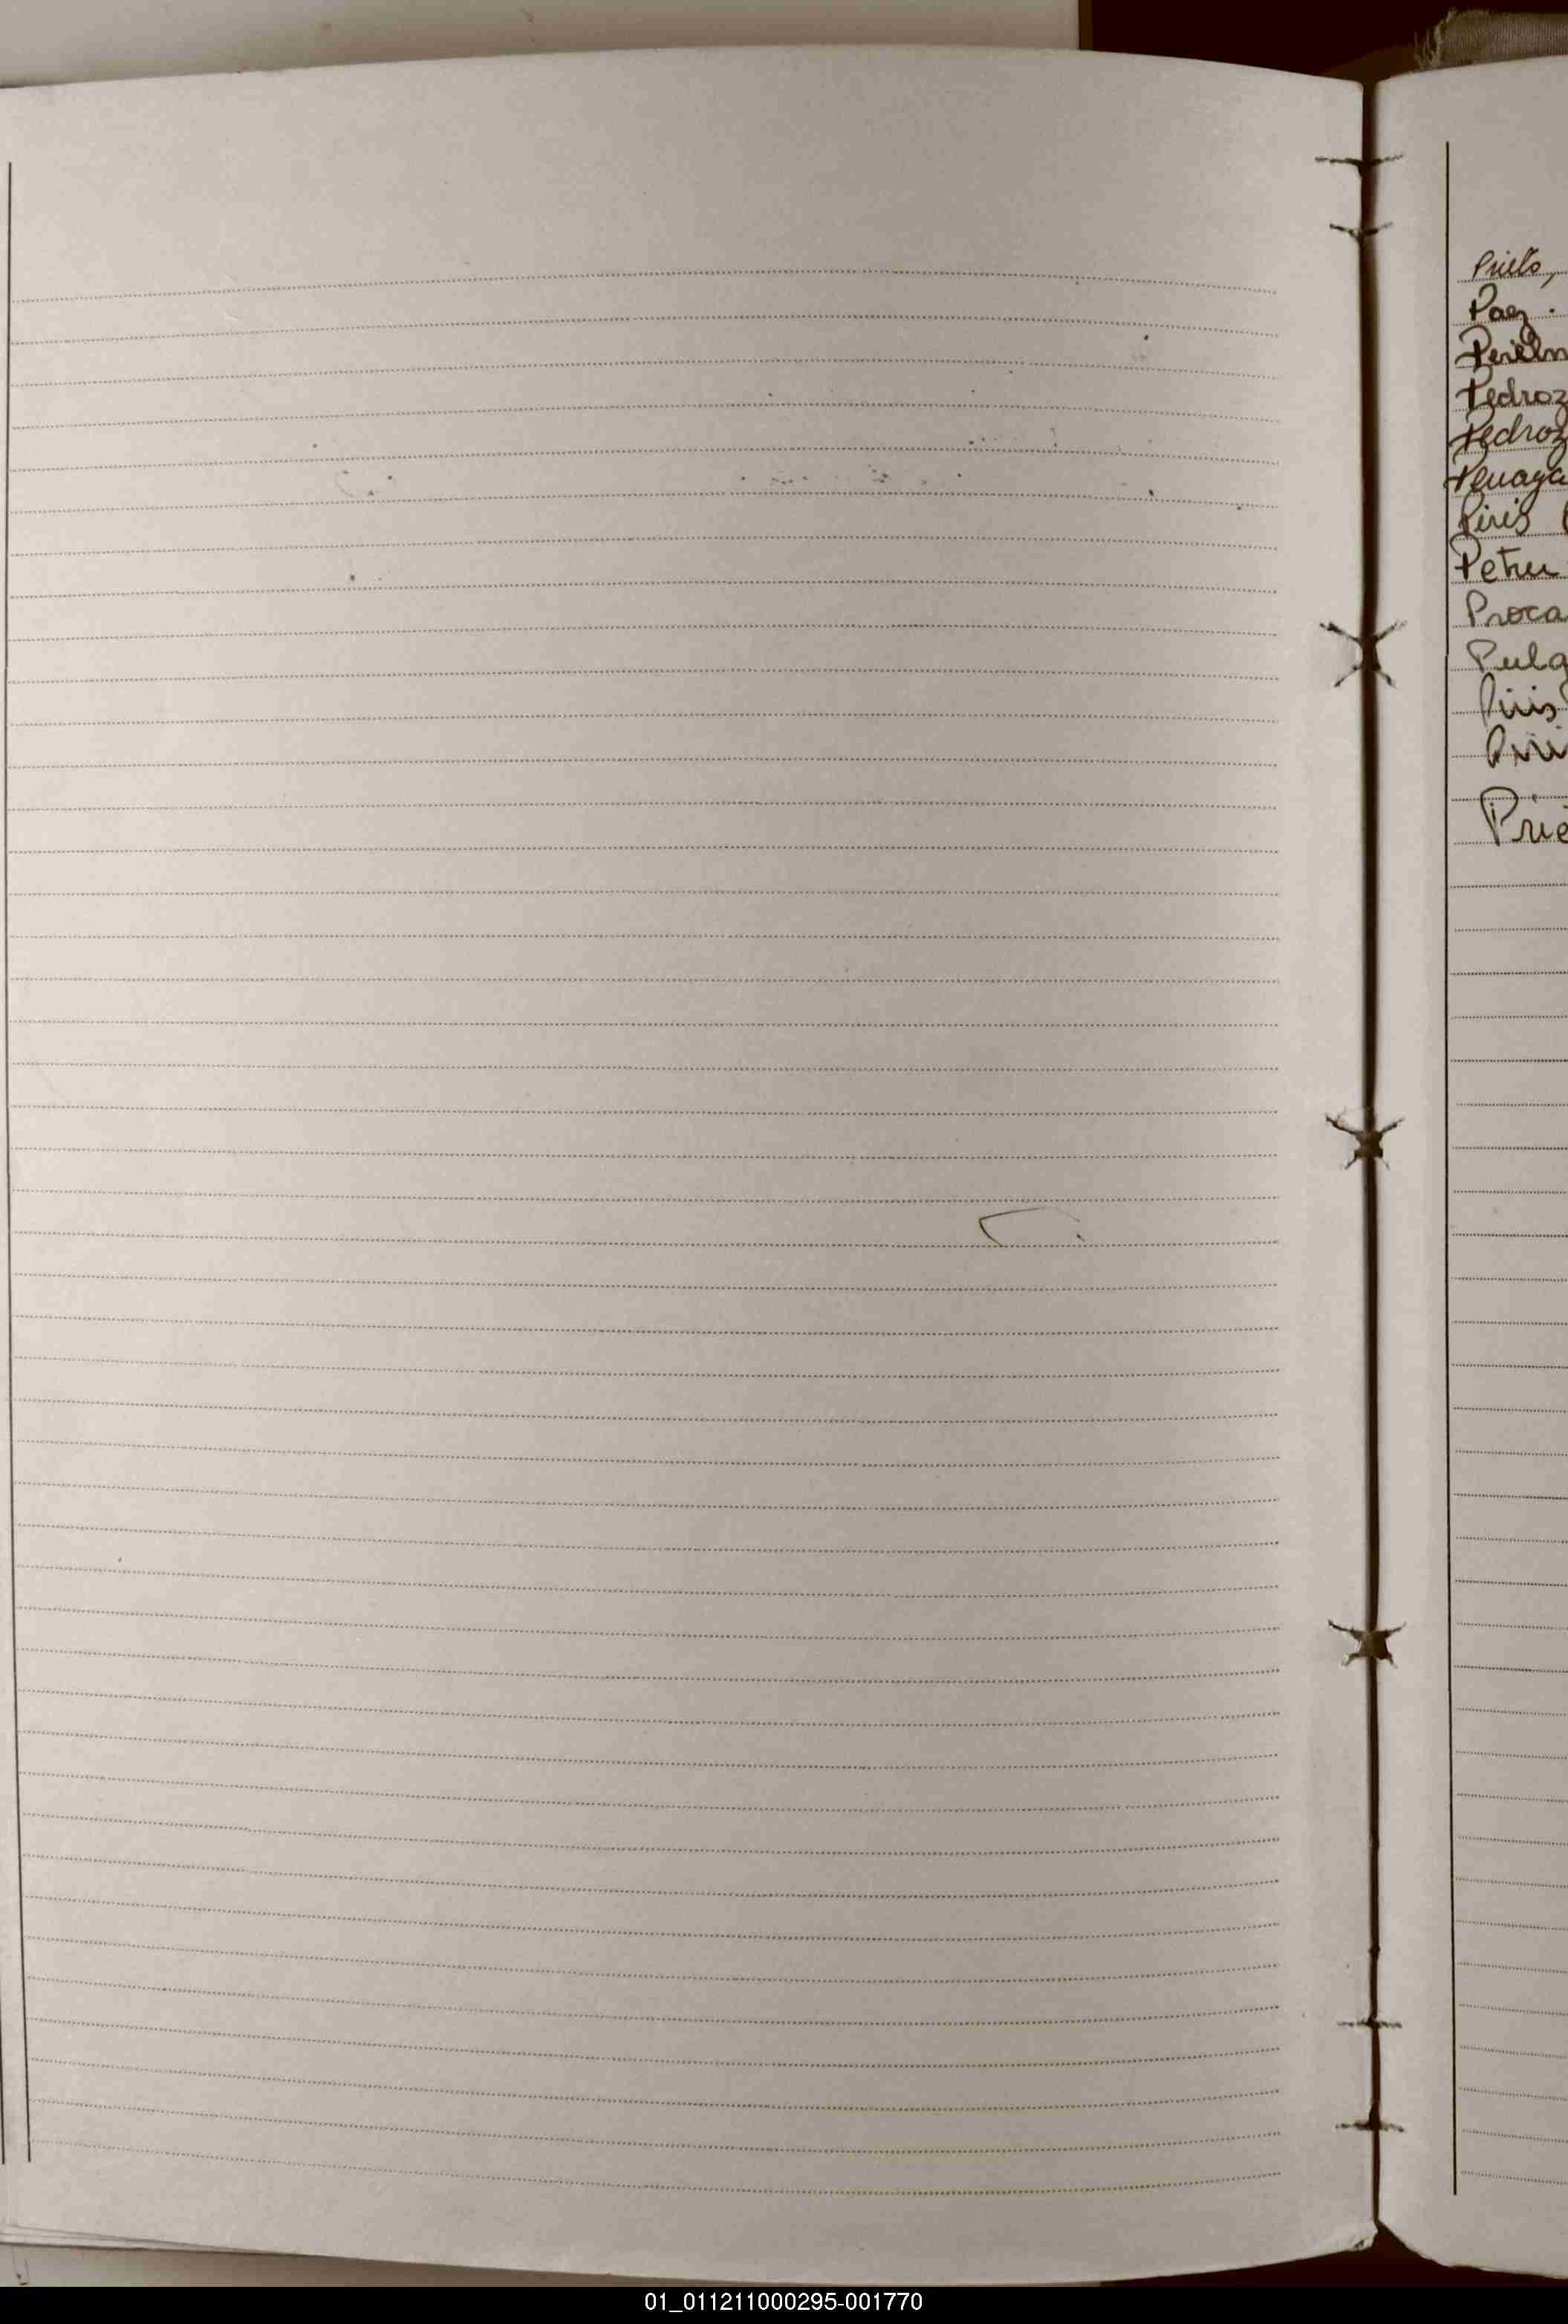 Prieto,
Paez.
Perelm
Pedroz
Pedroz
Penaya
Piris
Petru
Proca
Pula
Piris
Piri
Prie
01_011211000295-001770